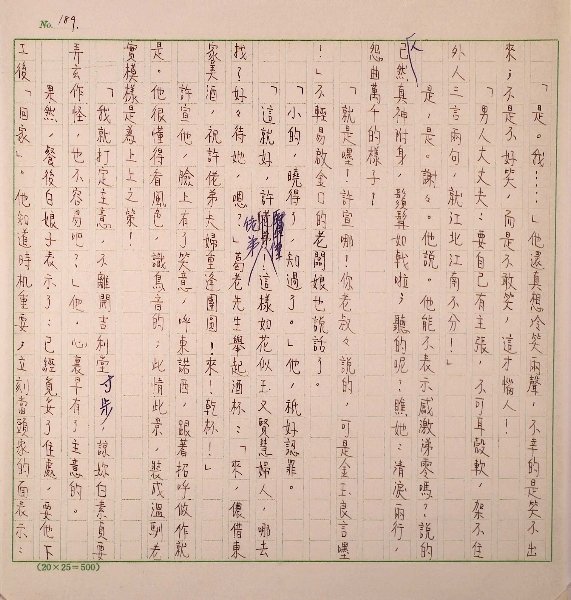 No. 189.
「是。我⋯⋯」他還真想冷笑兩聲，不幸的是笑不出
來；不是不好笑，而是不敢笑，這才惱人！
「男人大丈夫：要自己有主張，不可耳殼軟，架不住
外人三言兩句，就江北江南不分！」
是，是。謝々。他說。他能不表示感激涕零嗎？說的
人已然真神附身，鬚髯如戟啦；聽的呢？瞧她：清淚兩行，
怨曲萬千的樣子！
「就是嘿！許宣哪！你老叔々說的，可是金玉良言嘿
！」不輕易啟金口的老闆娘也說話了。
「小的，曉得了，知過了。」他，祇好認罪。
「這就好，許賢侄！這樣如花似玉又賢慧婦人，哪去
找？好々待她，嗯？」葛老先生舉起酒杯：「來，儂借東
家美酒，祝許佬弟夫婦重逢團圓！來！乾杯！」
許宣他，臉上有了笑意，呼東諾西，跟著招呼做作就
是。他很懂得看風色，識鳥音的；此情此景，裝成溫馴老
實模樣是為上上之策！
「我就打定主意，不離開吉利堂寸步，讓妳白素貞要
弄玄作怪，也不容易吧？」他，心裏早有了主意的。
果然，餐後白娘子表示了：已經覓妥了住處，要他下
工後「回家」。他知道時机重要，立刻當頭家的面表示：
(20×25=500)